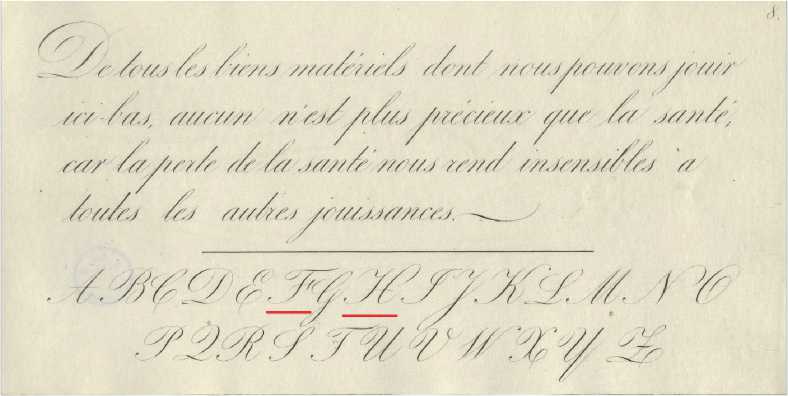 8.
De tous les biens matériels dont nous pouvons jouir
ici-bas, aucun n'est plus précieux que la santé,
car la perte de la santé nous rend insensibles à
toutes les autres jouissances.
A B C D E F G H I J K L M N O
P Q R S T U V W X Y Z